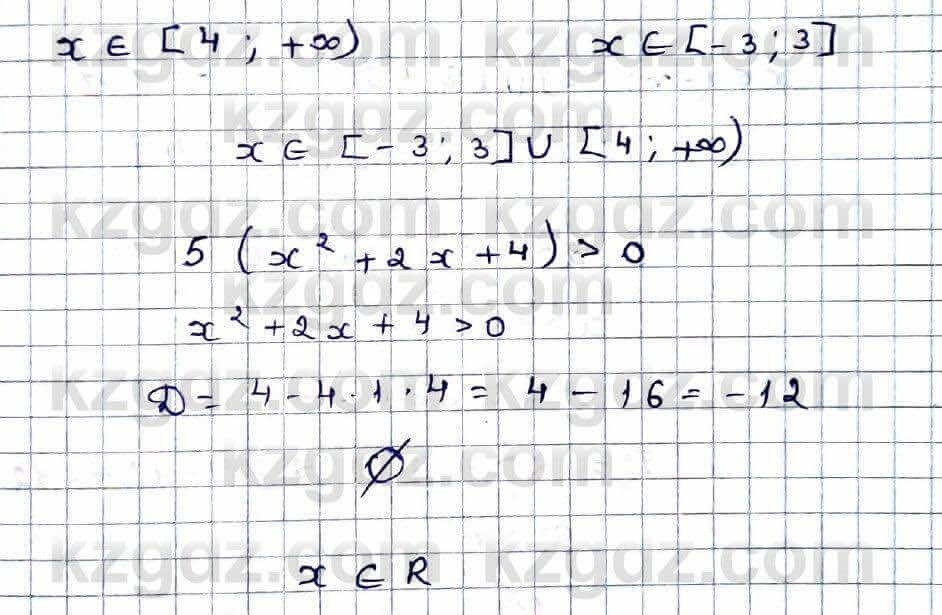 x ∈ [4; +∞) x ∈ [-3; 3]
x ∈ [-3; 3] ∪ [4; +∞)
5 (x² + 2x + 4) > 0
x² + 2x + 4 > 0
D = 4 - 4 · 1 · 4 = 4 - 16 = -12
∅
x ∈ R
kzgdz.com kzgdz.com
kzgdz.com
kzgdz.com kzgdz.com
kzgdz.com
kzgdz.com kzgdz.com
kzgdz.com
kzgdz.com kzgdz.com